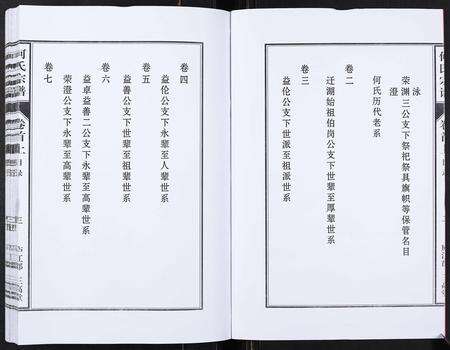 泳
荣渊三公支下祭祀祭具旗帜等保管名目
澄
何氏历代老系
卷二
迁湖始祖伯岗公支下世辈至厚辈世系
卷三
益伦公支下世派至祖派世系
卷四
益伦公支下永辈至人辈世系
卷五
益善公支下世辈至祖辈世系
卷六
益卓益善二公支下永辈至高辈世系
荣澄公支下永辈至高辈世系
卷七
何氏宗谱
卷首上
目录